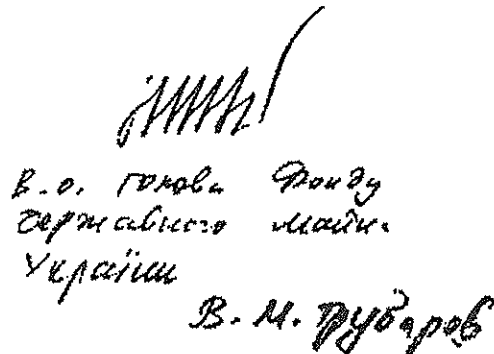 В.о. голова Фонду
державного майна
України
В. М. Трубаров